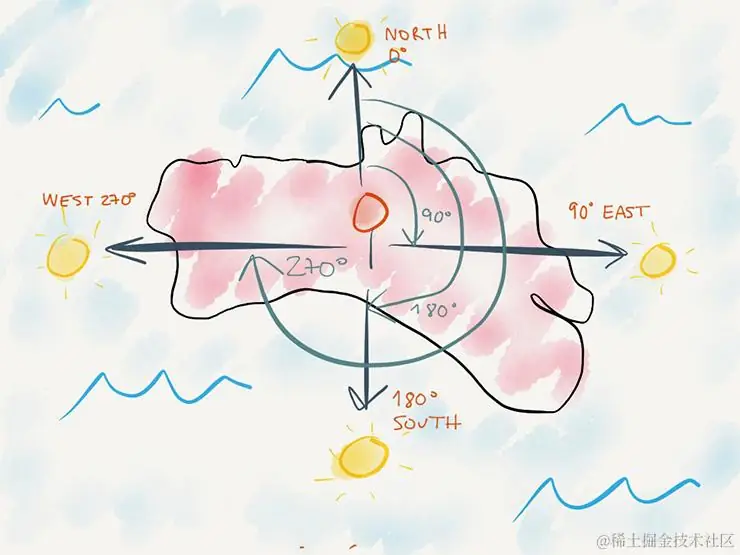 NORTH
0°
WEST 270°
90° EAST
90°
270°
180°
180°
SOUTH
@稀土掘金技术社区